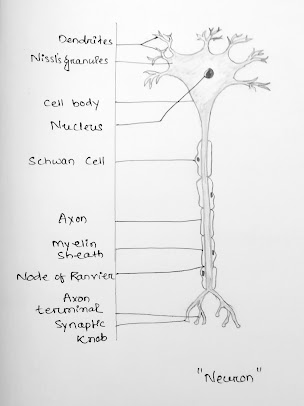 Dendrites
Nissl'sgranules
Cell body
Nucleus
Schwan Cell
Axon
Myelin
Sheath
Node of Ranvier
Axon
terminal
Synaptic
Knob
"Neuron"